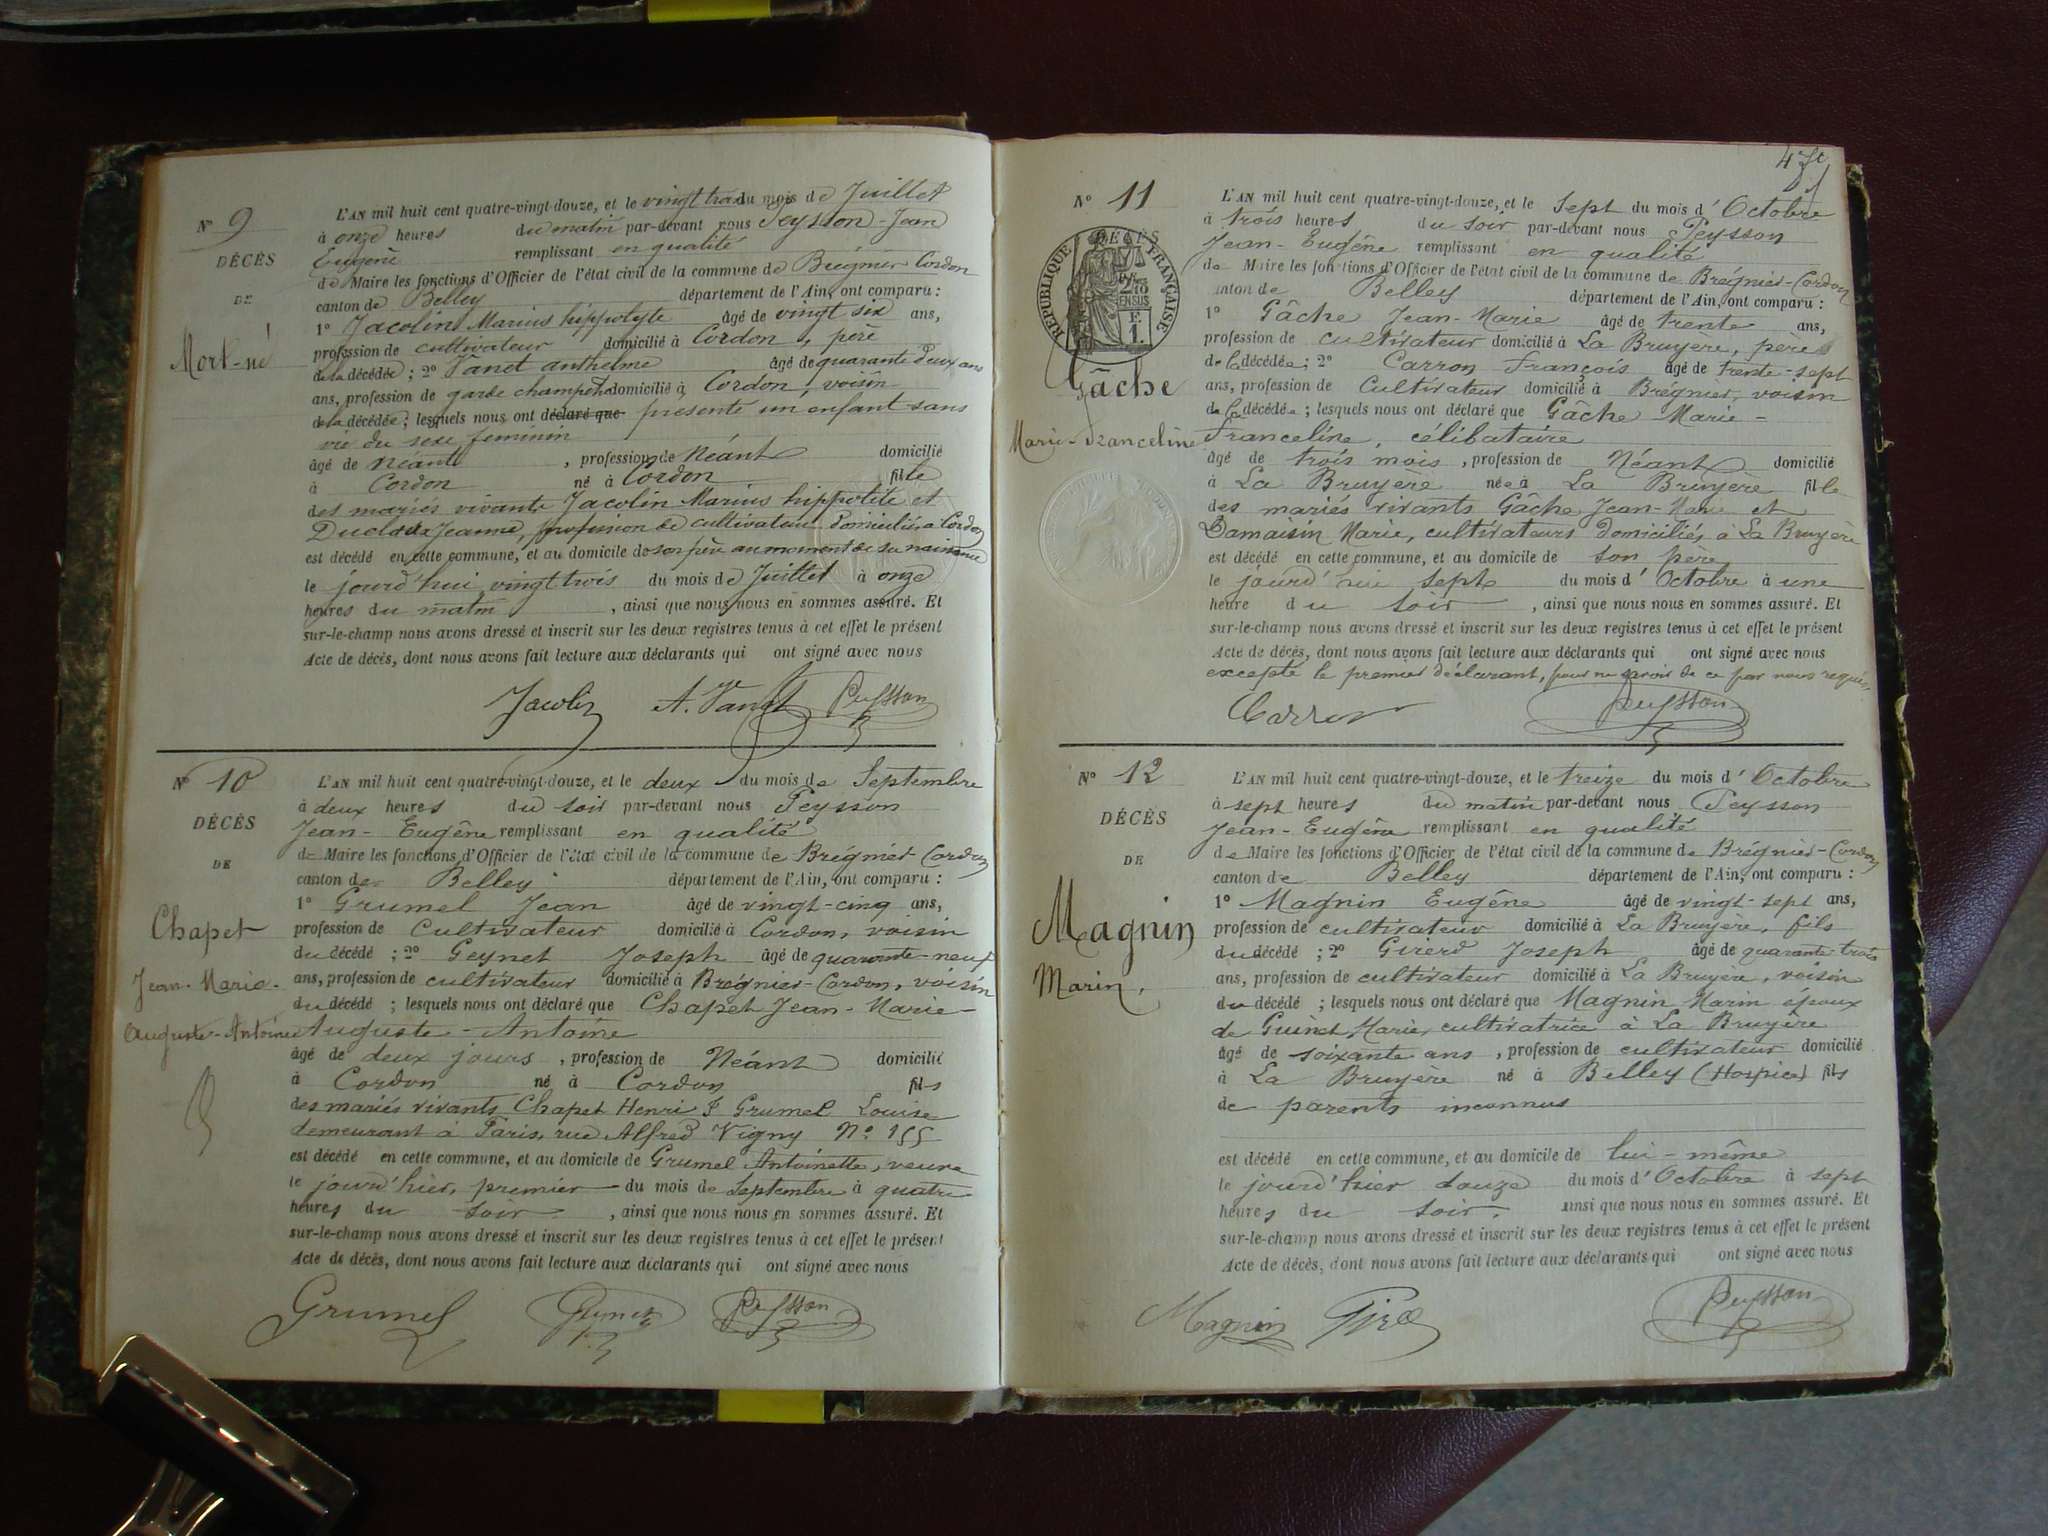 N° 9
DÉCÈS
DE
Mort-né
L'AN mil huit cent quatre-vingt-douze, et le vingt trois du mois de Juillet
à onze heures du matin par-devant nous Peysson Jean
Eugène remplissant en qualité
de Maire les fonctions d'Officier de l'état civil de la commune de Brégnier Cordon
canton de Belley département de l'Ain, ont comparu :
1° Jacolin Marius hippolyte âgé de vingt six ans,
profession de cultivateur domicilié à Cordon, père
de la décédée ; 2° Vanet anthelme âgé de quarante deux ans
ans, profession de garde champêtre domicilié à Cordon, voisin
de la décédée ; lesquels nous ont déclaré que présenté un enfant sans
vie du sexe feminin
âgé de Néant , profession de Néant domicilié
à Cordon né à Cordon fille
des mariés vivants Jacolin Marius hippolite et
Jeanne, profession de cultivateur domiciliés à Cordon
est décédé en cette commune, et au domicile de son père au moment de sa naissance
le jourd'hui vingt trois du mois de Juillet à onze
heures du matin , ainsi que nous nous en sommes assuré. Et
sur-le-champ nous avons dressé et inscrit sur les deux registres tenus à cet effet le présent
Acte de décès, dont nous avons fait lecture aux déclarants qui ont signé avec nous
Jacolin A. Vanet Peysson
N° 10
DÉCÈS
DE
Chapet
Jean-Marie-
Auguste-Antoine
L'AN mil huit cent quatre-vingt-douze, et le deux du mois de Septembre
à deux heures du soir par-devant nous Peysson
Jean-Eugène remplissant en qualité
de Maire les fonctions d'Officier de l'état civil de la commune de Brégnier-Cordon
canton de Belley département de l'Ain, ont comparu :
1° Grumel Jean âgé de vingt-cinq ans,
profession de Cultivateur domicilié à Cordon, voisin
du décédé ; 2° Geynet Joseph âgé de quarante-neuf
ans, profession de cultivateur domicilié à Brégnier-Cordon, voisin
du décédé ; lesquels nous ont déclaré que Chapet Jean-Marie-
Auguste-Antoine
âgé de deux jours , profession de Néant domicilié
à Cordon né à Cordon fils
des mariés vivants Chapet Henri & Grumel Louise
demeurant à Paris, rue Alfred Vigny N° 155
est décédé en cette commune, et au domicile de Grumel Antoinette, veuve
le jourd'hier, premier du mois de Septembre à quatre
heures du soir , ainsi que nous nous en sommes assuré. Et
sur-le-champ nous avons dressé et inscrit sur les deux registres tenus à cet effet le présent
Acte de décès, dont nous avons fait lecture aux déclarants qui ont signé avec nous
Grumel Geynet Peysson
N° 11
DÉCÈS
RÉPUBLIQUE FRANÇAISE
Gâche
Marie-Franceline
L'AN mil huit cent quatre-vingt-douze, et le sept du mois d'Octobre
à trois heures du soir par-devant nous Peysson
Jean-Eugène remplissant en qualité
de Maire les fonctions d'Officier de l'état civil de la commune de Brégnier-Cordon
canton de Belley département de l'Ain, ont comparu :
1° Gâche Jean-Marie âgé de trente ans,
profession de cultivateur domicilié à La Bruyère, père
de la décédée ; 2° Carron François âgé de trente-sept
ans, profession de Cultivateur domicilié à Brégnier, voisin
de la décédée ; lesquels nous ont déclaré que Gâche Marie-
Franceline, célibataire
âgé de trois mois , profession de Néant domicilié
à La Bruyère née à La Bruyère fille
des mariés vivants Gâche Jean-Marie et
Damaisin Marie, cultivateurs domiciliés à La Bruyère
est décédé en cette commune, et au domicile de son père
le jourd'hui sept du mois d'Octobre à une
heure du soir , ainsi que nous nous en sommes assuré. Et
sur-le-champ nous avons dressé et inscrit sur les deux registres tenus à cet effet le présent
Acte de décès, dont nous avons fait lecture aux déclarants qui ont signé avec nous
excepté le premier déclarant, pour ne savoir de ce par nous requis
Carron Peysson
N° 12
DÉCÈS
DE
Magnin
Marin,
L'AN mil huit cent quatre-vingt-douze, et le treize du mois d'Octobre
à sept heures du matin par-devant nous Peysson
Jean-Eugène remplissant en qualité
de Maire les fonctions d'Officier de l'état civil de la commune de Brégnier-Cordon
canton de Belley département de l'Ain, ont comparu :
1° Magnin Eugène âgé de vingt-sept ans,
profession de cultivateur domicilié à La Bruyère, fils
du décédé ; 2° Girerd Joseph âgé de quarante-trois
ans, profession de cultivateur domicilié à La Bruyère, voisin
du décédé ; lesquels nous ont déclaré que Magnin Marin époux
de Guinet Marie, cultivatrice à La Bruyère
âgé de soixante ans , profession de cultivateur domicilié
à La Bruyère né à Belley (Hospice) fils
de parents inconnus
est décédé en cette commune, et au domicile de lui-même
le jourd'hier douze du mois d'Octobre à sept
heures du soir, ainsi que nous nous en sommes assuré. Et
sur-le-champ nous avons dressé et inscrit sur les deux registres tenus à cet effet le présent
Acte de décès, dont nous avons fait lecture aux déclarants qui ont signé avec nous
Magnin Peysson